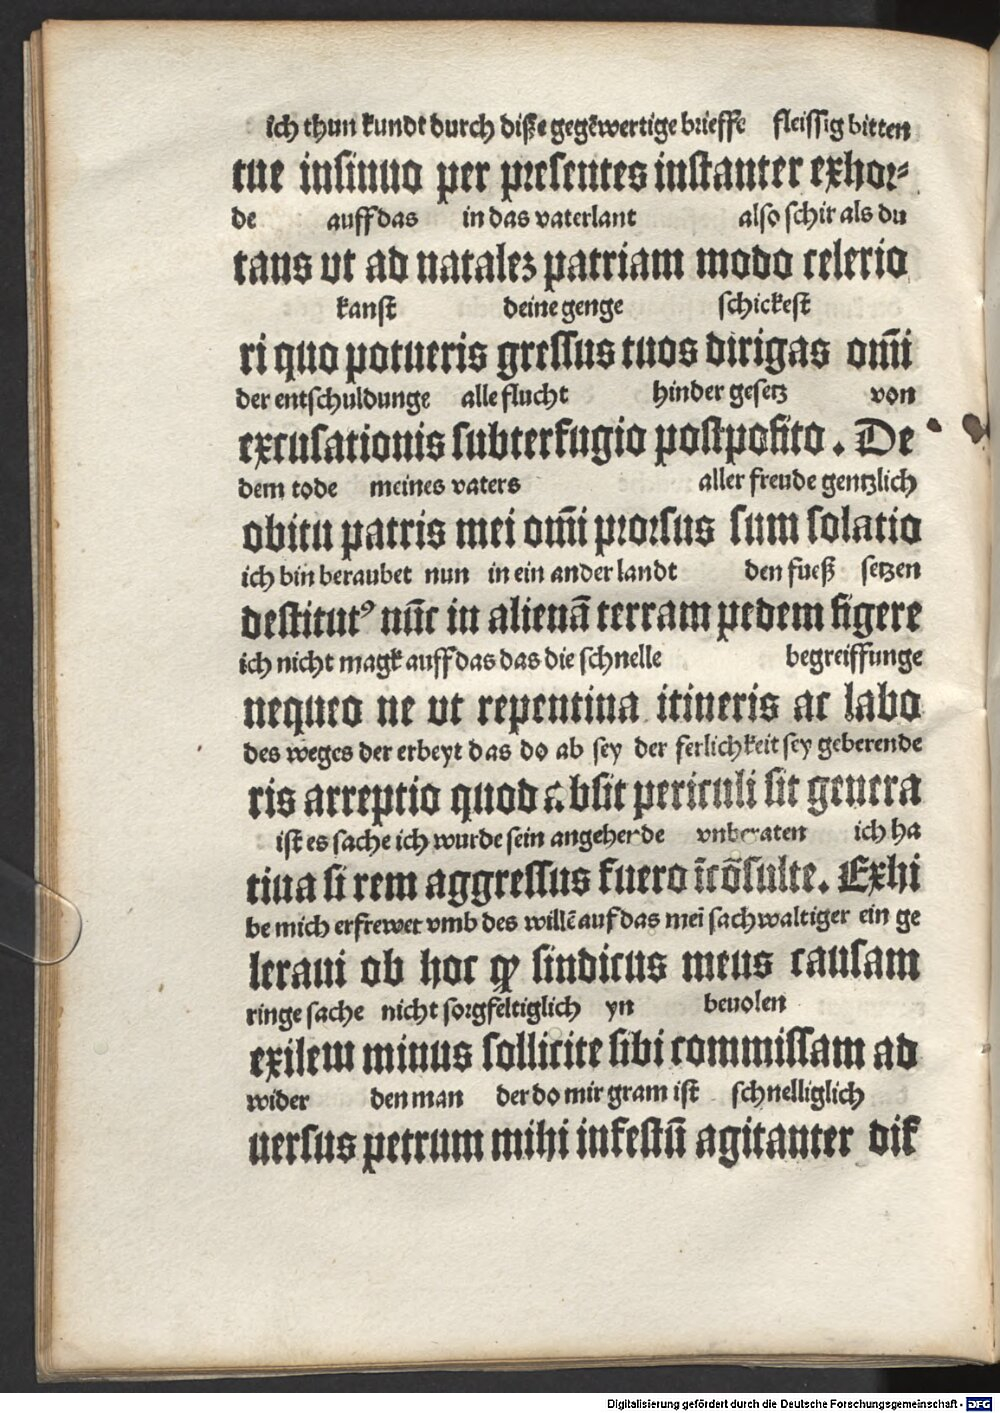 ich thun kundt durch diße gegēwertige brieffe fleissig bitten
tue insinuo per presentes instanter exhor⸗
de auff das in das vaterlant also schir als du
tans vt ad natalez patriam modo celerio
kanst deine genge schickest
ri quo potueris gressus tuos dirigas om̄i
der entschuldunge alle flucht hinder gesetz von
excusationis subterfugio postposito. De
dem tode meines vaters aller freude gentzlich
obitu patris mei om̄i prorsus sum solatio
ich bin beraubet nun in ein ander landt den fueß setzen
destitutꝰ nūc in alienā terram pedem figere
ich nicht magk auff das das die schnelle begreiffunge
nequeo ne vt repentina itineris ac labo
des weges der erbeyt das do ab sey der ferlichkeit sey geberende
ris arreptio quod absit periculi sit genera
ist es sache ich wurde sein angehende vnberaten ich ha
tiua si rem aggressus fuero īcōsulte. Exhi
be mich erfrewet vmb des willē auf das mei͂ sachwaltiger ein ge
leraui ob hoc qꝫ sindicus meus causam
ringe sache nicht sorgfeltiglich yn beuolen
exilem minus sollicite sibi commissam ad
wider den man der do mir gram ist schnelliglich
uersus petrum mihi infestū agitanter dif
Digitalisierung gefördert durch die Deutsche Forschungsgemeinschaft - DFG